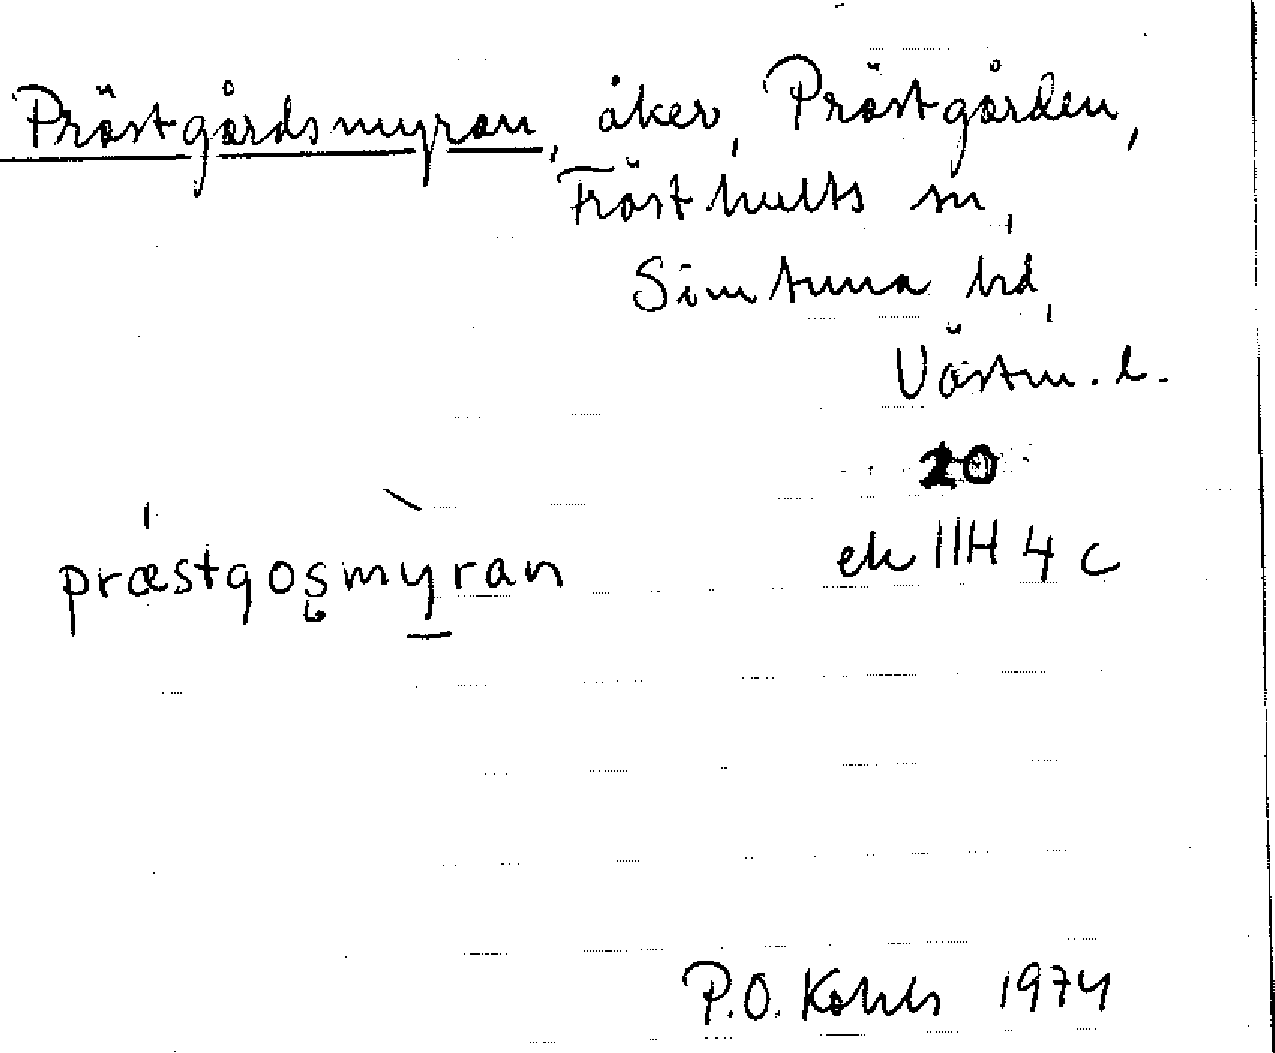 Prästgårdsmyran, åker, Prästgården,
Frösthults sn,
Simtuna hd,
Västm. l.
20
ek 11H 4 c
præstgosmyran
P.O. Kohls 1974